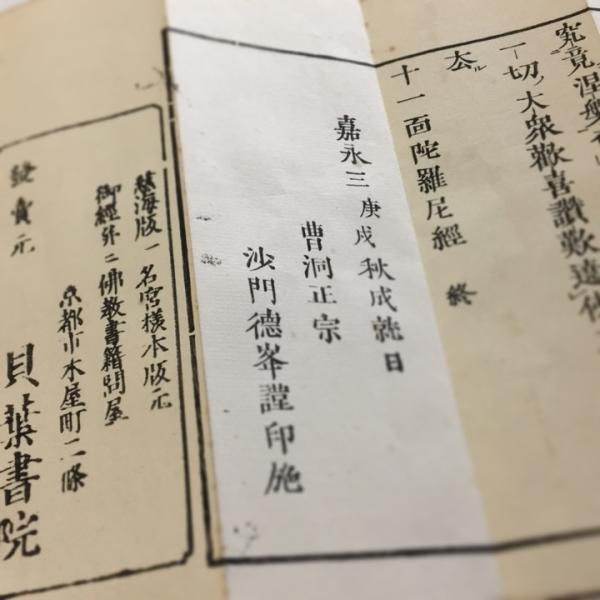 究竟涅槃
一切ノ大衆歡喜讃歎遶佛
去ル
十一面陀羅尼經 終
嘉永三庚戌秋成就日
曹洞正宗
沙門德峯謹印施
鉄海版一名宮樣本版元
御經外ニ佛教書籍問屋
京都市木屋町二條
發賣元 貝葉書院